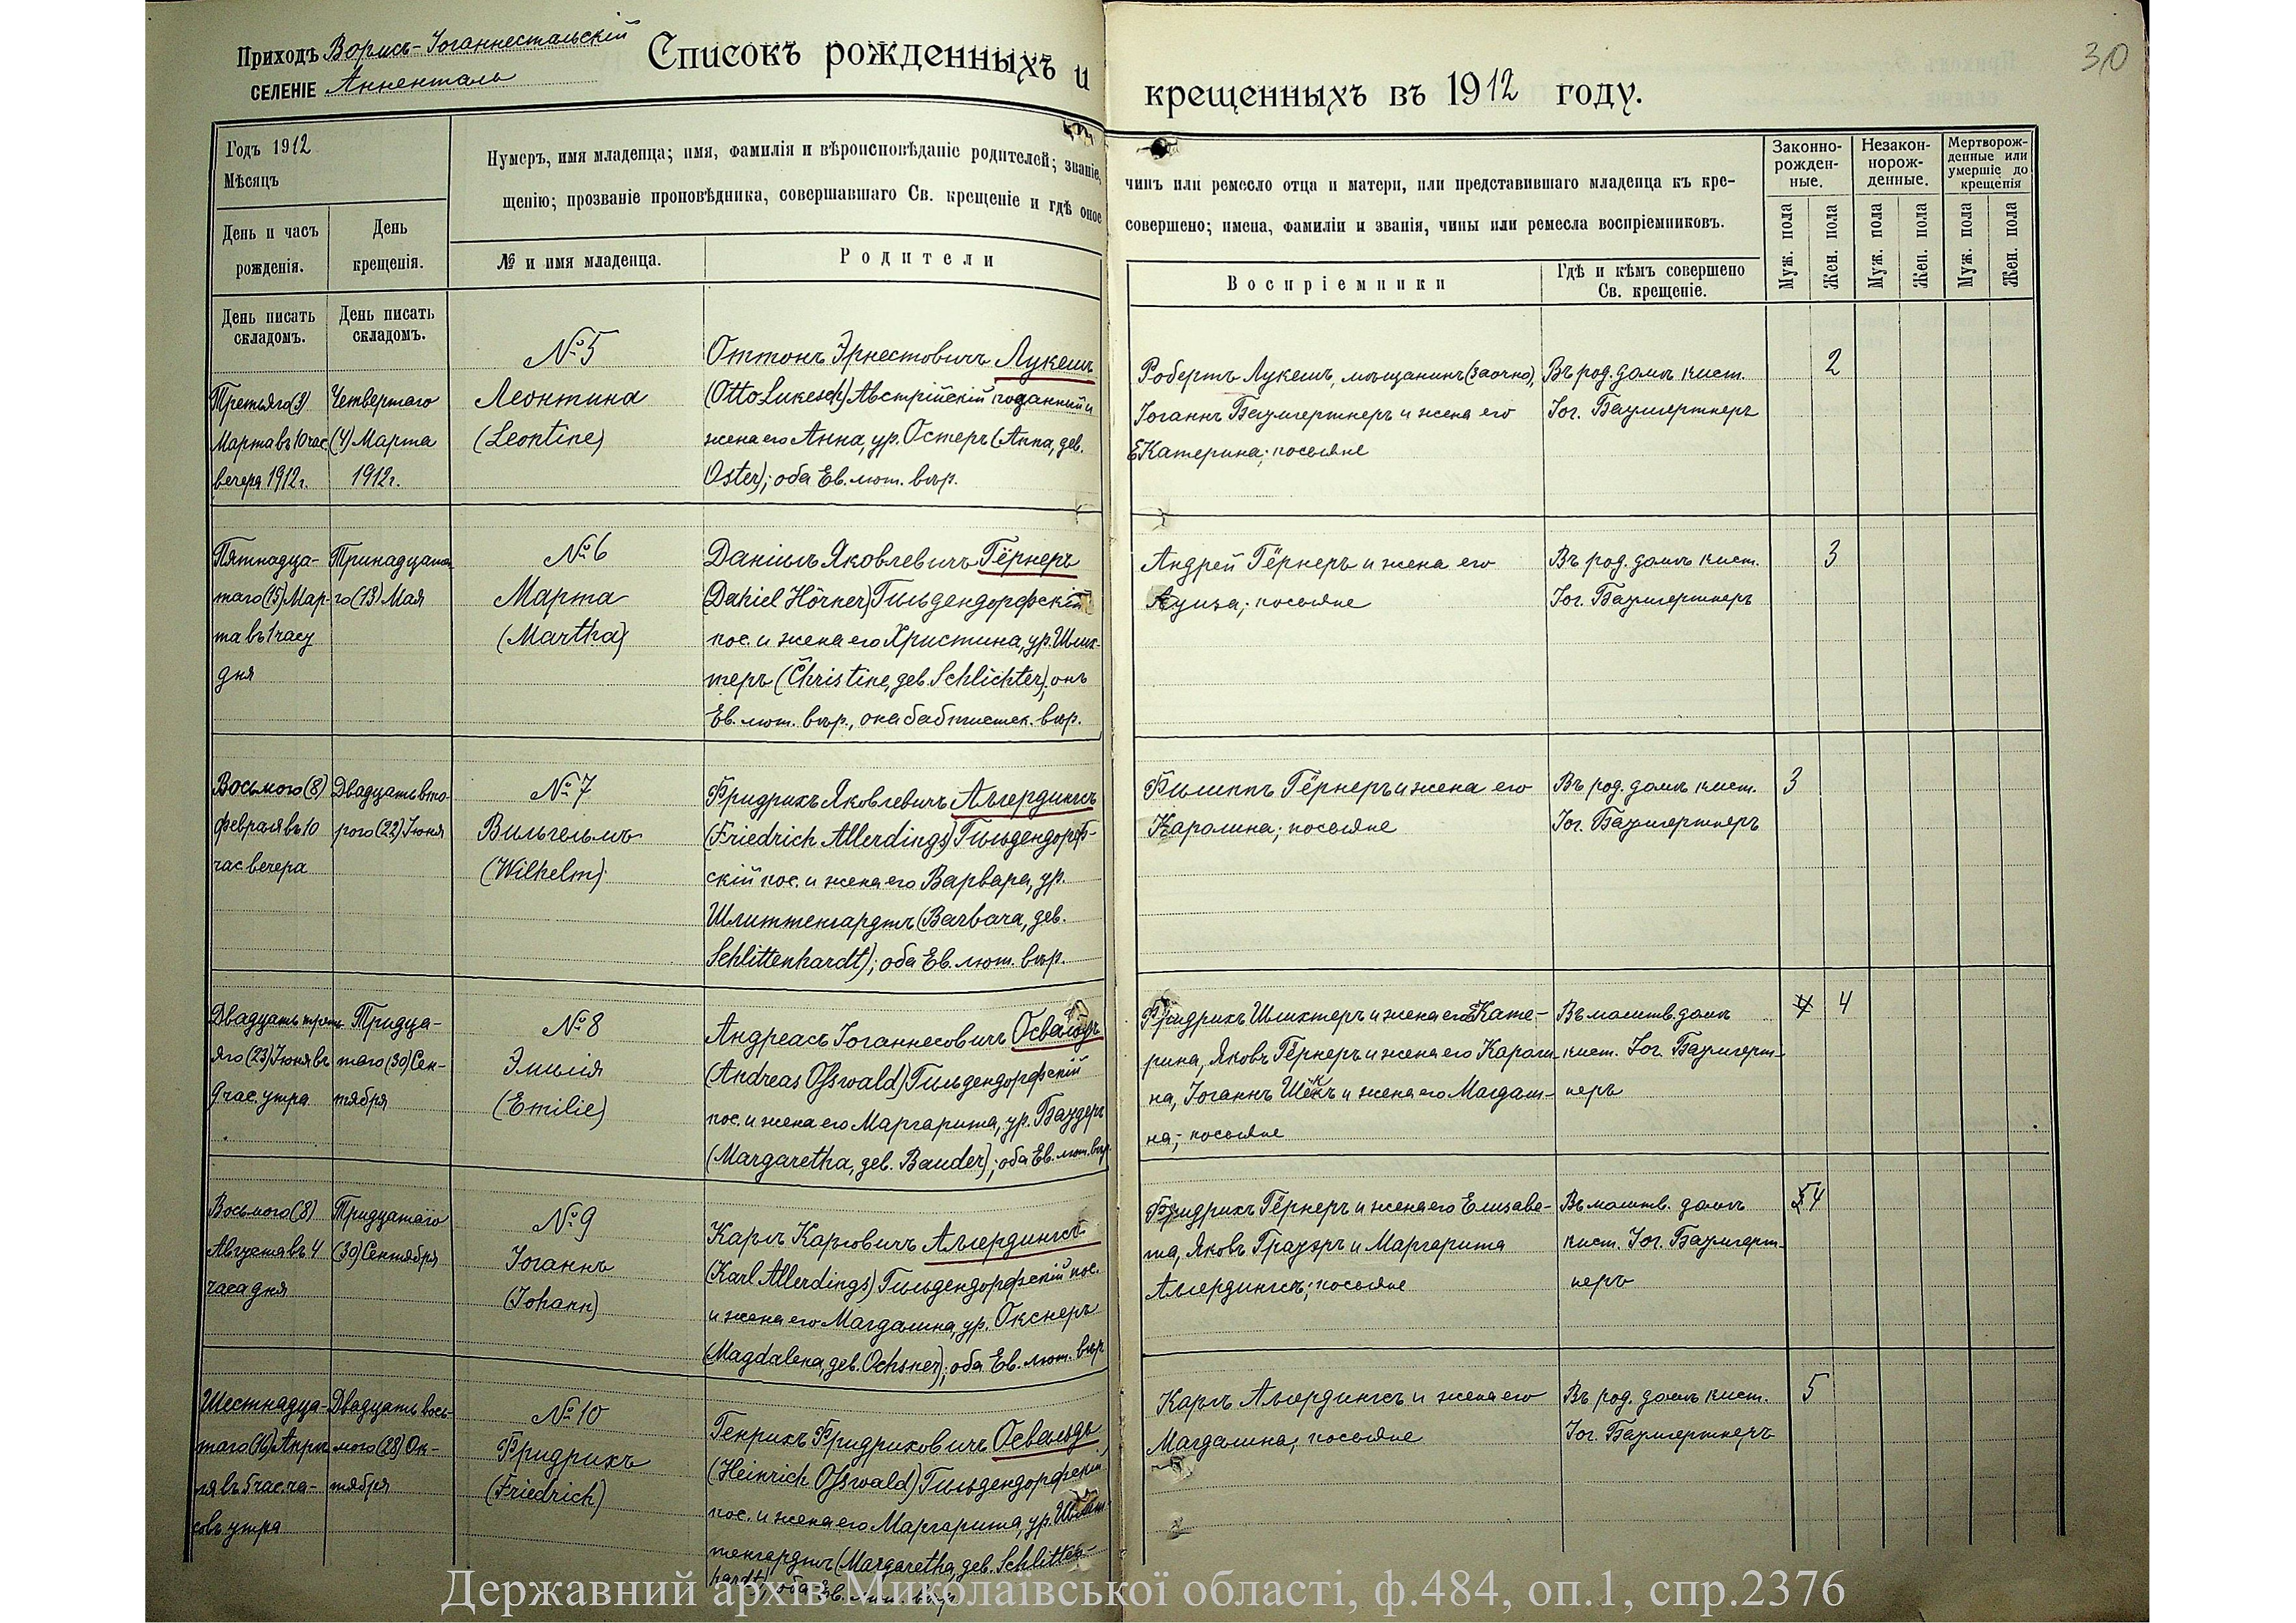 Приходъ Вормсъ-Іоганнестальскій
селеніе Анненталь
Списокъ рожденныхъ и крещенныхъ въ 1912 году.
30
Годъ 1912
Мѣсяцъ
День и часъ рожденія.
День крещенія.
Нумеръ, имя младенца; имя, фамилія и вѣроисповѣданіе родителей; званіе, чинъ или ремесло отца и матери, или представившаго младенца къ кре-
щенію; прозваніе проповѣдника, совершавшаго Св. крещеніе и гдѣ оное совершено; имена, фамиліи и званія, чины или ремесла воспріемниковъ.
№ и имя младенца.
Родители
Воспріемники
Гдѣ и кѣмъ совершено
Св. крещеніе.
Законно-
рожден-
ные.
Незакон-
норож-
денные.
Мертворож-
денные или
умершіе до
крещенія
Муж. пола
Жен. пола
Муж. пола
Жен. пола
Муж. пола
Жен. пола
День писать
складомъ.
День писать
складомъ.
Третьяго (3)
Марта въ 10 час.
вечера 1912 г.
Четвертаго
(4) Марта
1912 г.
№ 5
Леонтина
(Leontine)
Оттонъ Эрнестовичъ Лукешъ
(Otto Lukesch) Австрійскій подданный и
жена его Анна, ур. Остеръ (Anna, geb.
Oster); оба Ев. лют. вѣр.
Робертъ Лукешъ, мѣщанинъ (заочно),
Іоганнъ Баумгертнеръ и жена его
Екатерина; поселяне
Въ род. домѣ кист.
Іог. Баумгертнеръ
2
Пятнадца-
таго (15) Мар-
та въ 1 часу
дня
Тринадцата-
го (13) Мая
№ 6
Марта
(Martha)
Даніилъ Яковлевичъ Гёрнеръ
(Daniel Hörner) Гильдендорфскій
пос. и жена его Христина, ур. Шлих-
теръ (Christine, geb. Schlichter), онъ
Ев. лют. вѣр., она баптистск. вѣр.
Андрей Гёрнеръ и жена его
Луиза; поселяне
Въ род. домѣ кист.
Іог. Баумгертнеръ
3
Восьмого (8)
февраля въ 10
час вечера
Двадцать вто-
рого (22) Іюня
№ 7
Вильгельмъ
(Wilhelm)
Фридрихъ Яковлевичъ Аллердингсъ
(Friedrich Allerdings) Гильдендорф-
скій пос. и жена его Варвара, ур.
Шлиттенгардтъ (Barbara, geb.
Schlittenhardt); оба Ев. лют. вѣр.
Филиппъ Гёрнеръ и жена его
Каролина; поселяне
Въ род. домѣ кист.
Іог. Баумгертнеръ
3
Двадцать треть-
яго (23) Іюня въ
9 час. утра
Тридца-
таго (30) Сен-
тября
№ 8
Эмилія
(Emilie)
Андреасъ Іоганнесовичъ Освальдъ
(Andreas Osswald) Гильдендорфскій
пос. и жена его Маргарита, ур. Баудеръ
(Margaretha, geb. Bauder); оба Ев. лют. вѣр.
Фридрихъ Шлихтеръ и жена его Екате-
рина, Яковъ Гёрнеръ и жена его Кароли-
на, Іоганнъ Шёкъ и жена его Магдали-
на; поселяне
Въ молитв. домѣ
кист. Іог. Баумгерт-
неръ
4 4
Восьмого (8)
Августа въ 4
часа дня
Тридцатаго
(30) Сентября
№ 9
Іоганнъ
(Johann)
Карлъ Карловичъ Аллердингсъ
(Karl Allerdings) Гильдендорфскій пос.
и жена его Магдалина, ур. Окснеръ
(Magdalena, geb. Ochsner); оба Ев. лют. вѣр
Фридрихъ Гёрнеръ и жена его Елизаве-
та, Яковъ Грауэръ и Маргарита
Аллердингсъ; поселяне
Въ молитв. домѣ
кист. Іог. Баумгерт-
неръ
4
Шестнадца-
таго (16) Апрѣ-
ля въ 5 час. ча-
совъ утра
Двадцать вось-
мого (28) Ок-
тября
№ 10
Фридрихъ
(Friedrich)
Генрихъ Фридриховичъ Освальдъ
(Heinrich Osswald) Гильдендорфскій
пос. и жена его Маргарита, ур. Шлит-
тенгардтъ (Margaretha, geb. Schlitten-
hardt), оба Ев. лют. вѣр.
Карлъ Аллердингсъ и жена его
Магдалина; поселяне
Въ род. домѣ кист.
Іог. Баумгертнеръ
5
Державний архів Миколаївської області, ф.484, оп.1, спр.2376